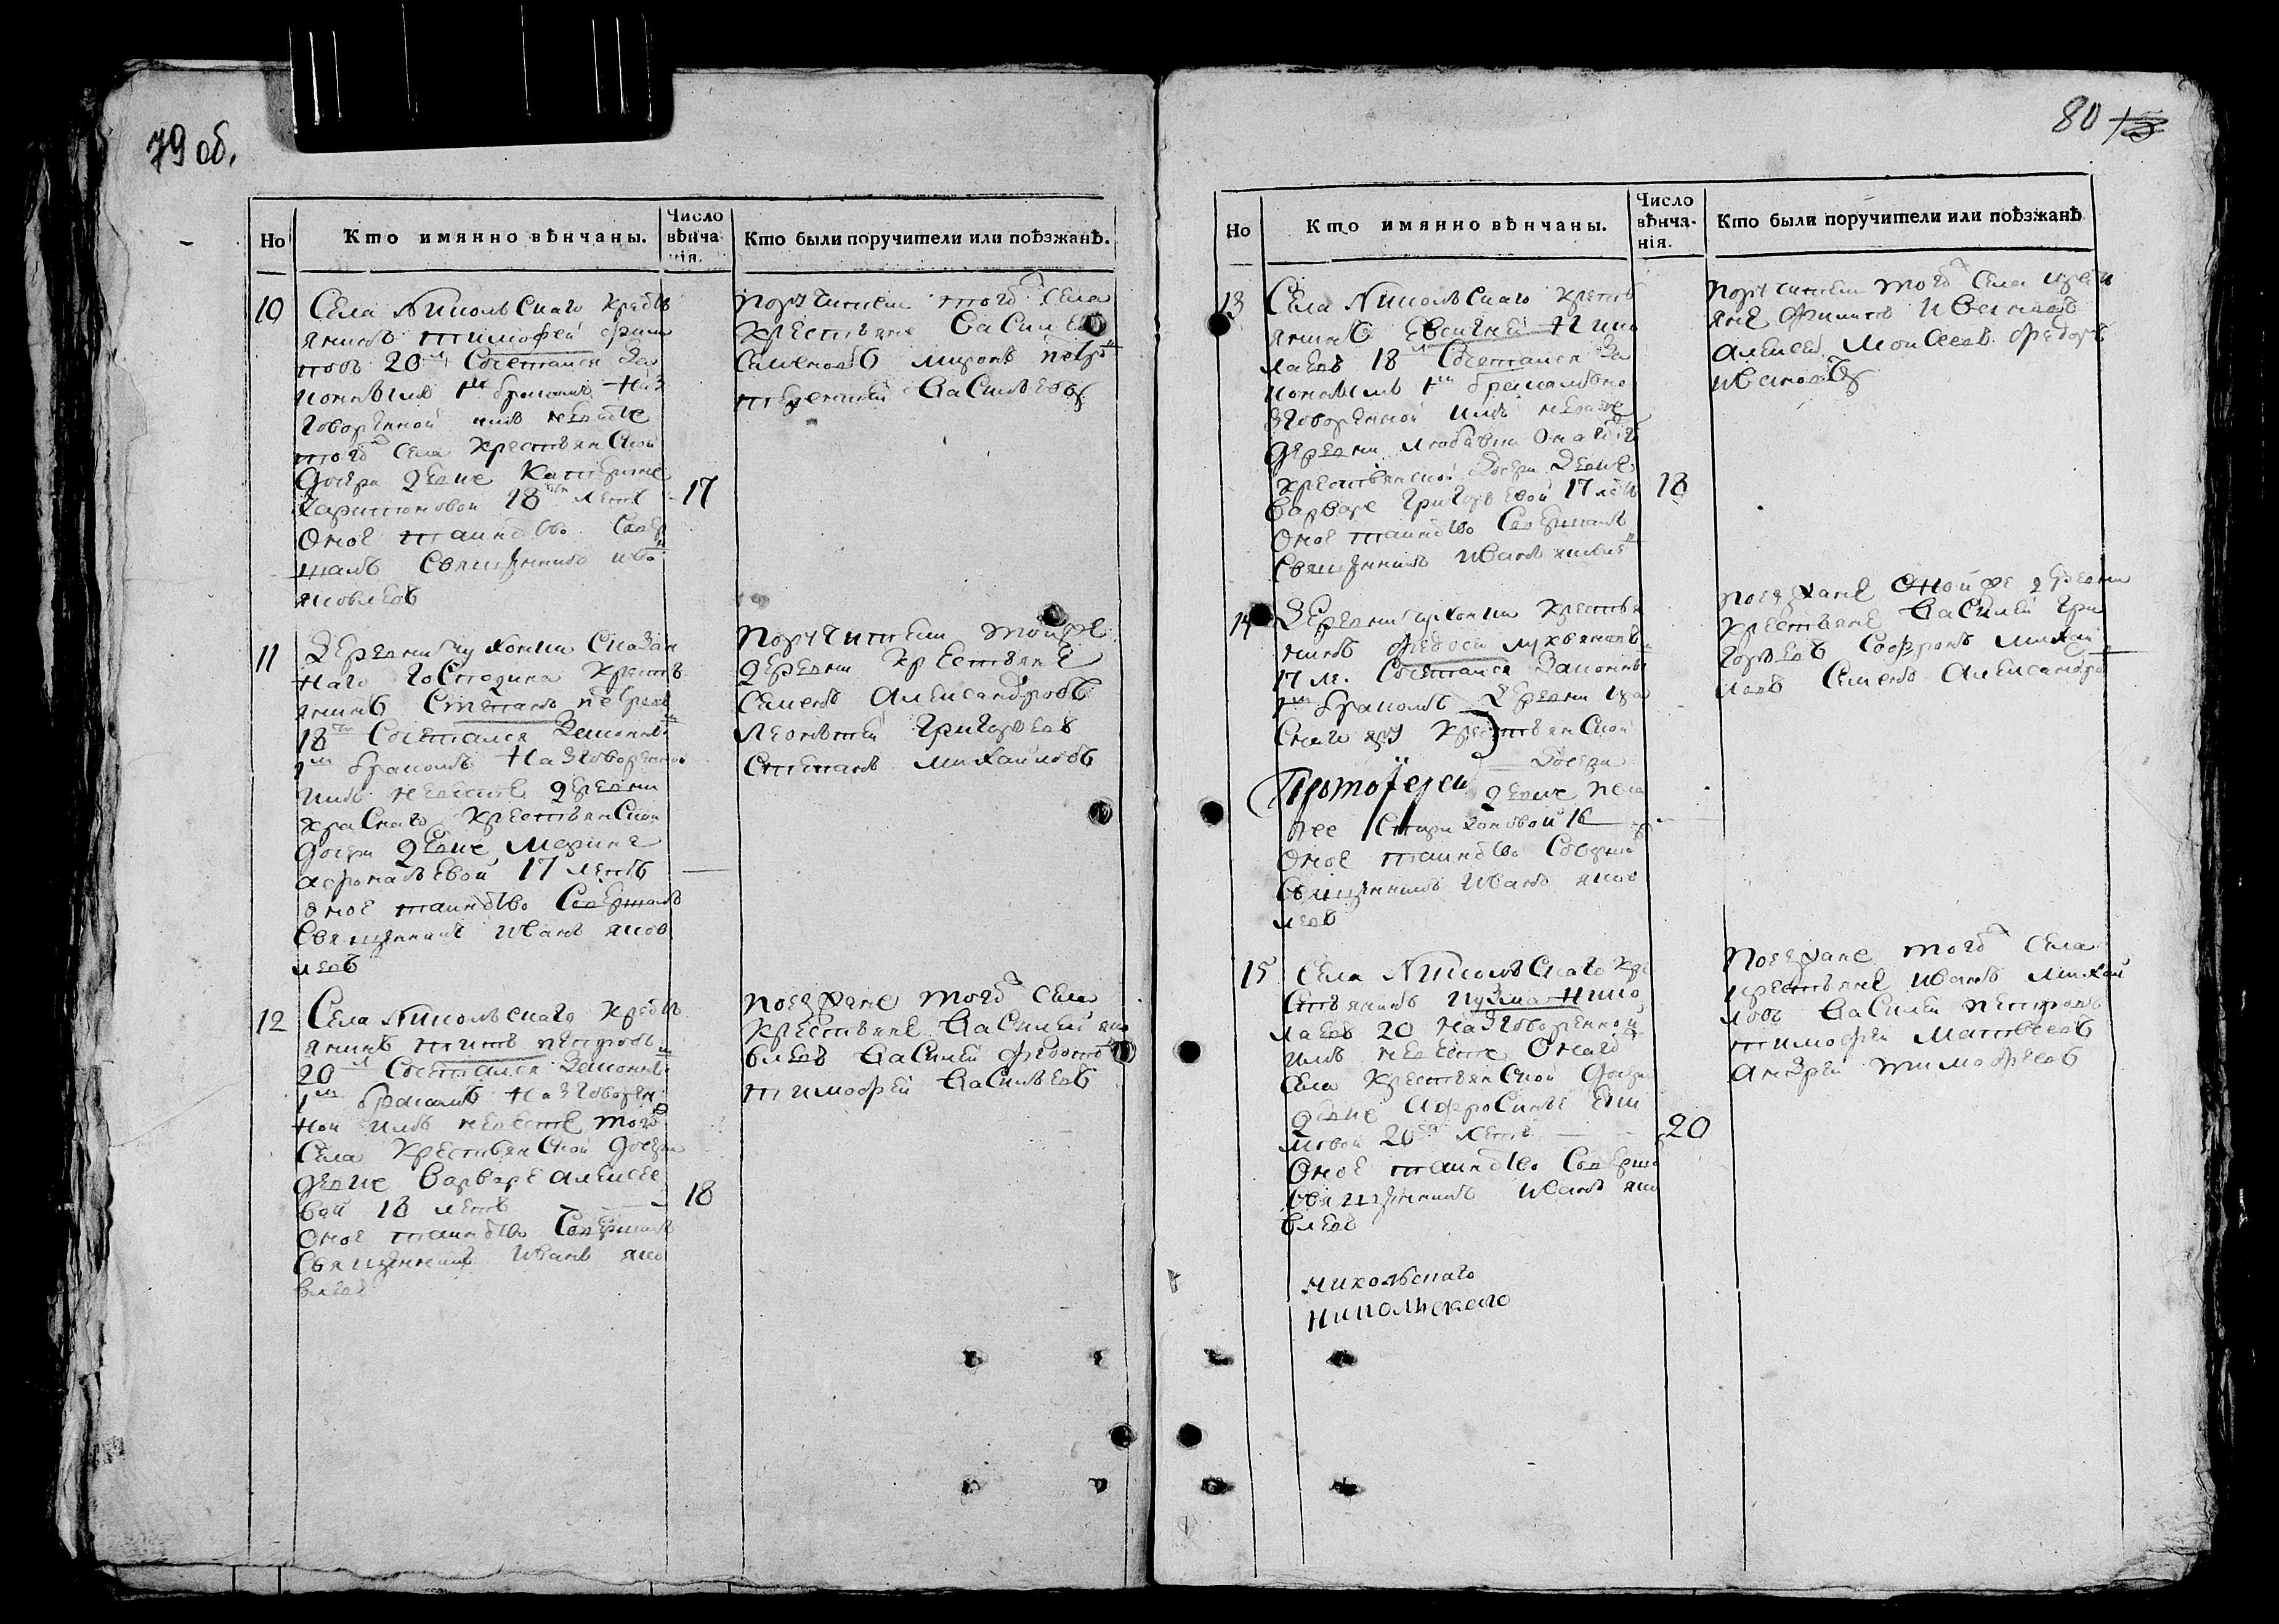 79 об.
Но
Кто имянно вѣнчаны.
Число
вѣнча
нія.
Кто были поручители или поѣзжанѣ.
10
Села Никольскаго кресть
янинъ тимофей фили
повъ 20 Сочетался За
коннымъ 1м бракомъ На З
говоренной имъ невѣсте
того Села крестьянской
дочери девке Катерине
Харитоновой 18 летъ
Оное таинство Совер
шалъ Священникъ ива
яковлевъ
17
Поручители того Села
крестьяне Василей
Семеновъ миронъ петро
терентей Васильевъ
11
Деревни
наго Господина кресть
янинъ Степанъ петровъ
18 Сочетался Законны
1м бракомъ На Зговоренной
имъ невесте деревни
краснаго крестьянской
дочери девке Марине
афонасьевой 17 летъ
оное таинство Совершалъ
Священникъ Иванъ яков
левъ
Поручители той же
деревни крестьяне
Семенъ Александровъ
Леонтей Григорьевъ
Степанъ Михайловъ
12
Села Никольскаго кресть
янинъ титъ петровъ
20 Сочетался Законны
1м бракомъ На Зговорен
ной имъ невесте того
Села крестьянской дочери
девке Варваре алексее
вой 18 летъ
Оное таинство Совершалъ
Священникъ Иванъ яко
влев
18
Поезжане того села
крестьяне Василей яко
влевъ Василей Федото
тимофей Васильевъ
80
Но
Кто имянно вѣнчаны.
Число
вѣнча-
нія.
Кто были поручители или поѣзжанѣ
13
Села Никольскаго кресть
янинъ Евсигней Нико
лаевъ 18 Сочетался За
коннымъ 1м бракомъ на
Зговоренной имъ невесте
деревни онаго
крестьянской дочери девке
Варваре Григорьевой 17 летъ
Оное таинство Совершалъ
Священникъ Иванъ яковле
18
Поручители того Села крест
яне Филипъ Ивановъ
алексей Моисеевъ Федоръ
Ивановъ
14
Деревни крестья
нинъ Федосей лукьяновъ
17 ле. Сочетался Законны
1м бракомъ Деревни кра
снаго крестьянской
Дочери
Протоіерей девке пела
гее 16
Оное таинство Соверша
Священникъ Иванъ яков
левъ
поезжане Оной же деревни
крестьяне Василей Гри
горьевъ Софронъ Михай
ловъ Семенъ Александро
15
Села Никольскаго кре
стьянинъ кузма Нико
лаевъ 20 На Зговоренной
имъ невесте Онаго
Села крестьянской дочери
девке Афросинье
20 летъ
Оное таинство Соверша
Священникъ Иванъ яко
влевъ
20
Поезжане того Села
крестьяне иванъ Михай
ловъ Василей петровъ
тимофей Матвеевъ
андрей тимофеевъ
Никольскаго
Никольскаго